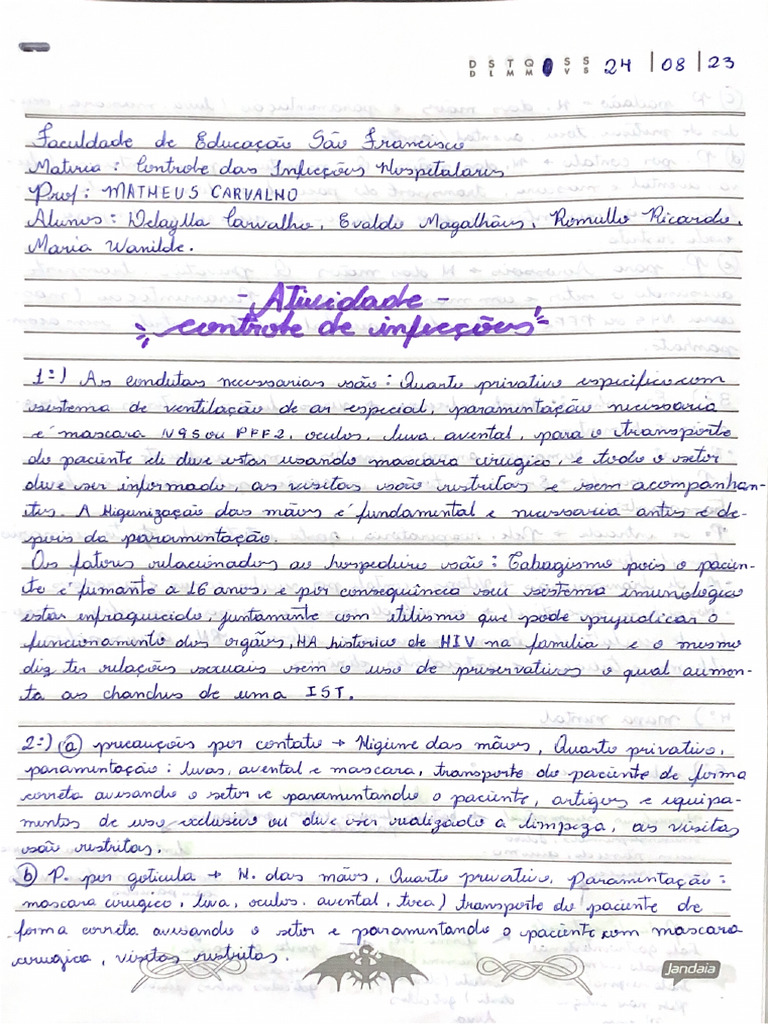 D S T Q Q S S 24 | 08 | 23
D L M M J V S
Faculdade de Educação São Francisco
Materia: Controle das Infecções Hospitalares
Prof: MATHEUS CARVALHO
Alunos: Delaylla Carvalho, Evaldo Magalhães, Romullo Ricardo,
Maria Wanilde.
- Atividade -
controle de infecções
1=) As condutas necessarias são: Quarto privativo especifico com
sistema de ventilação de ar especial, paramentação necessaria
é mascara N95 ou PFF2, oculos, luva, avental, para o transporte
do paciente ele deve estar usando mascara cirugico, e todo o setor
deve ser informado, as visitas são restritas e sem acompanhan-
tes. A Higienização das mãos é fundamental e necessaria antes e de-
pois da paramentação.
Os fatores relacionados ao hospedeiro são: Tabagismo pois o pacien-
te é fumante a 16 anos, e por consequência seu sistema imunologico
estar enfraquecido, juntamente com etilismo que pode prejudicar o
funcionamento dos orgãos, HA historico de HIV na familia, e o mesmo
diz ter relações sexuais sem o uso de preservativos o qual aumen-
ta as chanches de uma IST.
2=) (a) precauções por contato → Higiene das mãos, Quarto privativo,
paramentação: luvas, avental e mascara, transporte do paciente de forma
correta avisando o setor e paramentando o paciente, artigos e equipa-
mentos de uso exclusivo ou deve ser realizado a limpeza, as visitas
são restritas.
(b) P. por goticula → H. das mãos, Quarto privativo, Paramentação:
mascara cirugico, luva, oculos, avental, toca) transporte do paciente de
forma correta avisando o setor e paramentando o paciente com mascara
cirugica, visitas restritas.
Jandaia